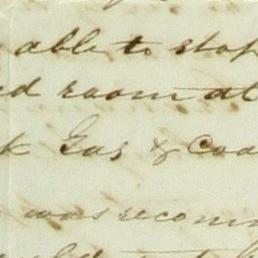 able to stop
ed room at
k Gas & Coa
was recom